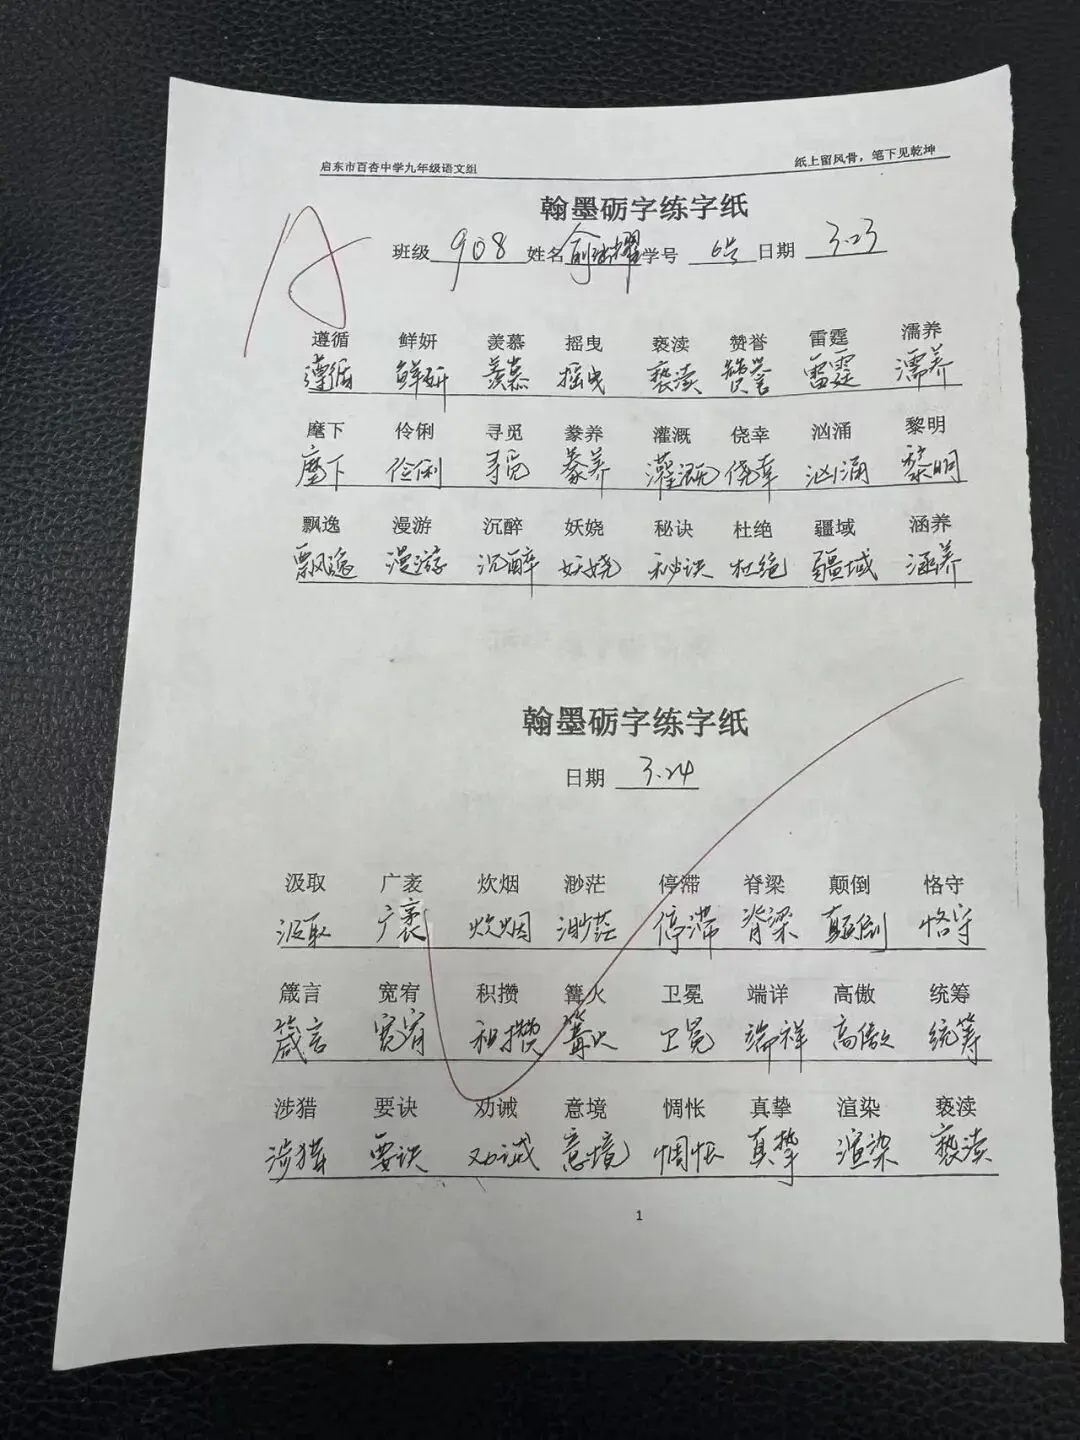 启东市百杏中学九年级语文组 纸上留风骨,笔下见乾坤
翰墨砺字练字纸
A
班级 908 姓名 学号 6号 日期 3.23
遵循 鲜妍 羡慕 摇曳 亵渎 赞誉 雷霆 濡养
遵循 鲜妍 羡慕 摇曳 亵渎 赞誉 雷霆 濡养
麾下 伶俐 寻觅 豢养 灌溉 侥幸 汹涌 黎明
麾下 伶俐 寻觅 豢养 灌溉 侥幸 汹涌 黎明
飘逸 漫游 沉醉 妖娆 秘诀 杜绝 疆域 涵养
飘逸 漫游 沉醉 妖娆 秘诀 杜绝 疆域 涵养
翰墨砺字练字纸
日期 3.24
汲取 广袤 炊烟 渺茫 停滞 脊梁 颠倒 恪守
汲取 广袤 炊烟 渺茫 停滞 脊梁 颠倒 恪守
箴言 宽宥 积攒 篝火 卫冕 端详 高傲 统筹
箴言 宽宥 积攒 篝火 卫冕 端祥 高傲 统筹
涉猎 要诀 劝诫 意境 惆怅 真挚 渲染 亵渎
涉猎 要诀 劝诫 意境 惆怅 真挚 渲染 亵渎
1